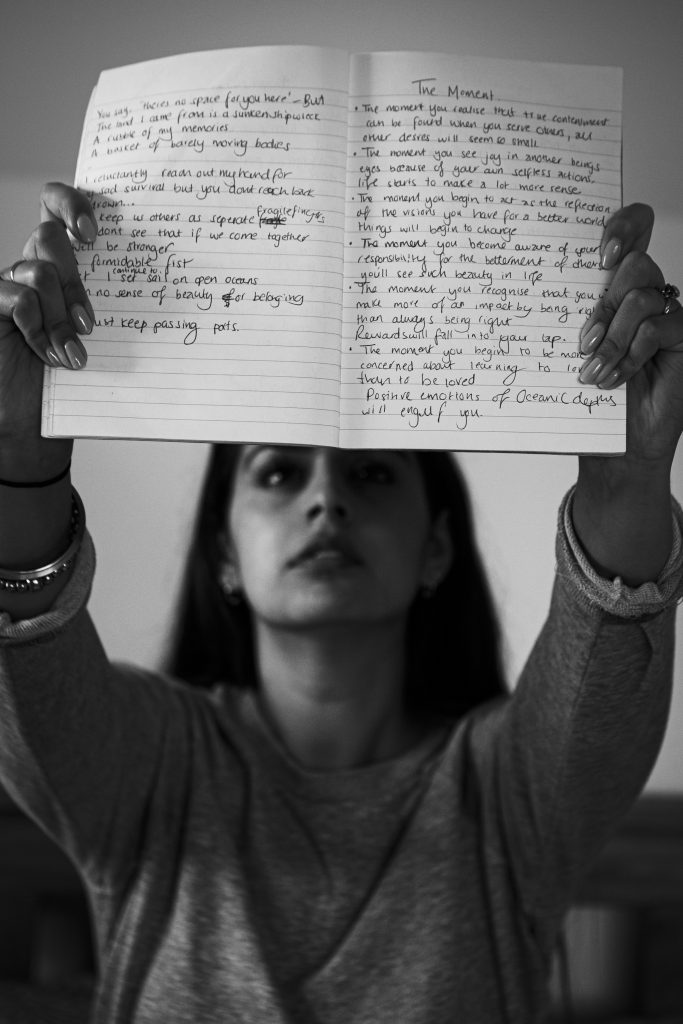 You say, 'theres no space for you here' - But
The land I came from is a sunken shipwreck
A rubble of my memories
A basket of barely moving bodies
I reluctantly reach out my hand for
sad survival but you dont reach back
keep us others as seperate fragile fingers
dont see that if we come together
be stronger
formidable fist
I continue to set sail on open oceans
no sense of beauty or belonging
just keep passing ports.
The Moment
• The moment you realise that true contentment
can be found when you serve others, all
other desires will seem so small
• The moment you see joy in another beings
eyes because of your own selfless actions,
life starts to make a lot more sense
• The moment you begin to act as the reflection
of the visions you have for a better world
things will begin to change
• The moment you become aware of your
responsibility for the betterment of others
you'll see such beauty in life
• The moment you recognise that you
make more of an impact by being
than always being right
Rewards will fall into your lap.
• The moment you begin to be more
concerned about learning to love
than to be loved
Positive emotions of Oceanic depths
will engulf you.